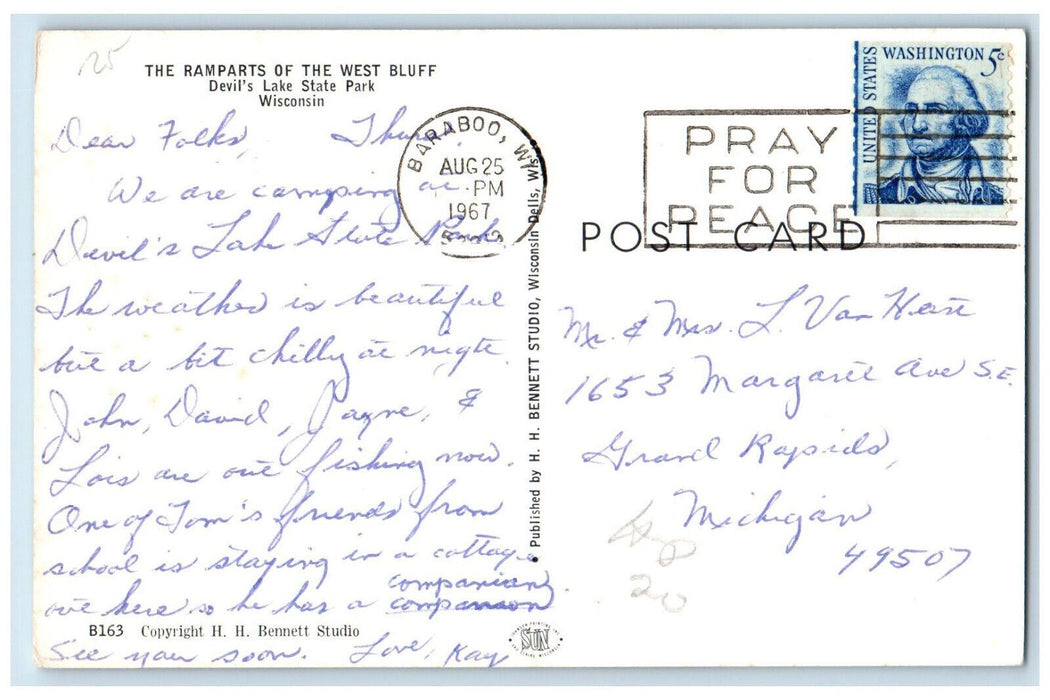 25
THE RAMPARTS OF THE WEST BLUFF
Devil's Lake State Park
Wisconsin
Dear Folks, Thurs.
We are camping at
Devil's Lake State Park.
The weather is beautiful
but a bit chilly at night.
John, David, Jayne, &
Lois are out fishing now.
One of Tom's friends from
school is staying in a cottage
out here so he has a companion
companion.
B163 Copyright H. H. Bennett Studio
See you soon. Love, Kay
BARABOO, WI
AUG 25
PM
1967
• Published by H. H. BENNETT STUDIO, Wisconsin Dells, Wis. •
PRAY
FOR
PEACE
UNITED STATES
WASHINGTON 5c
POST CARD
Mr. & Mrs. L. Van
1653 Margaret Ave S.E.
Grand Rapids,
Michigan
49507
20
SUN